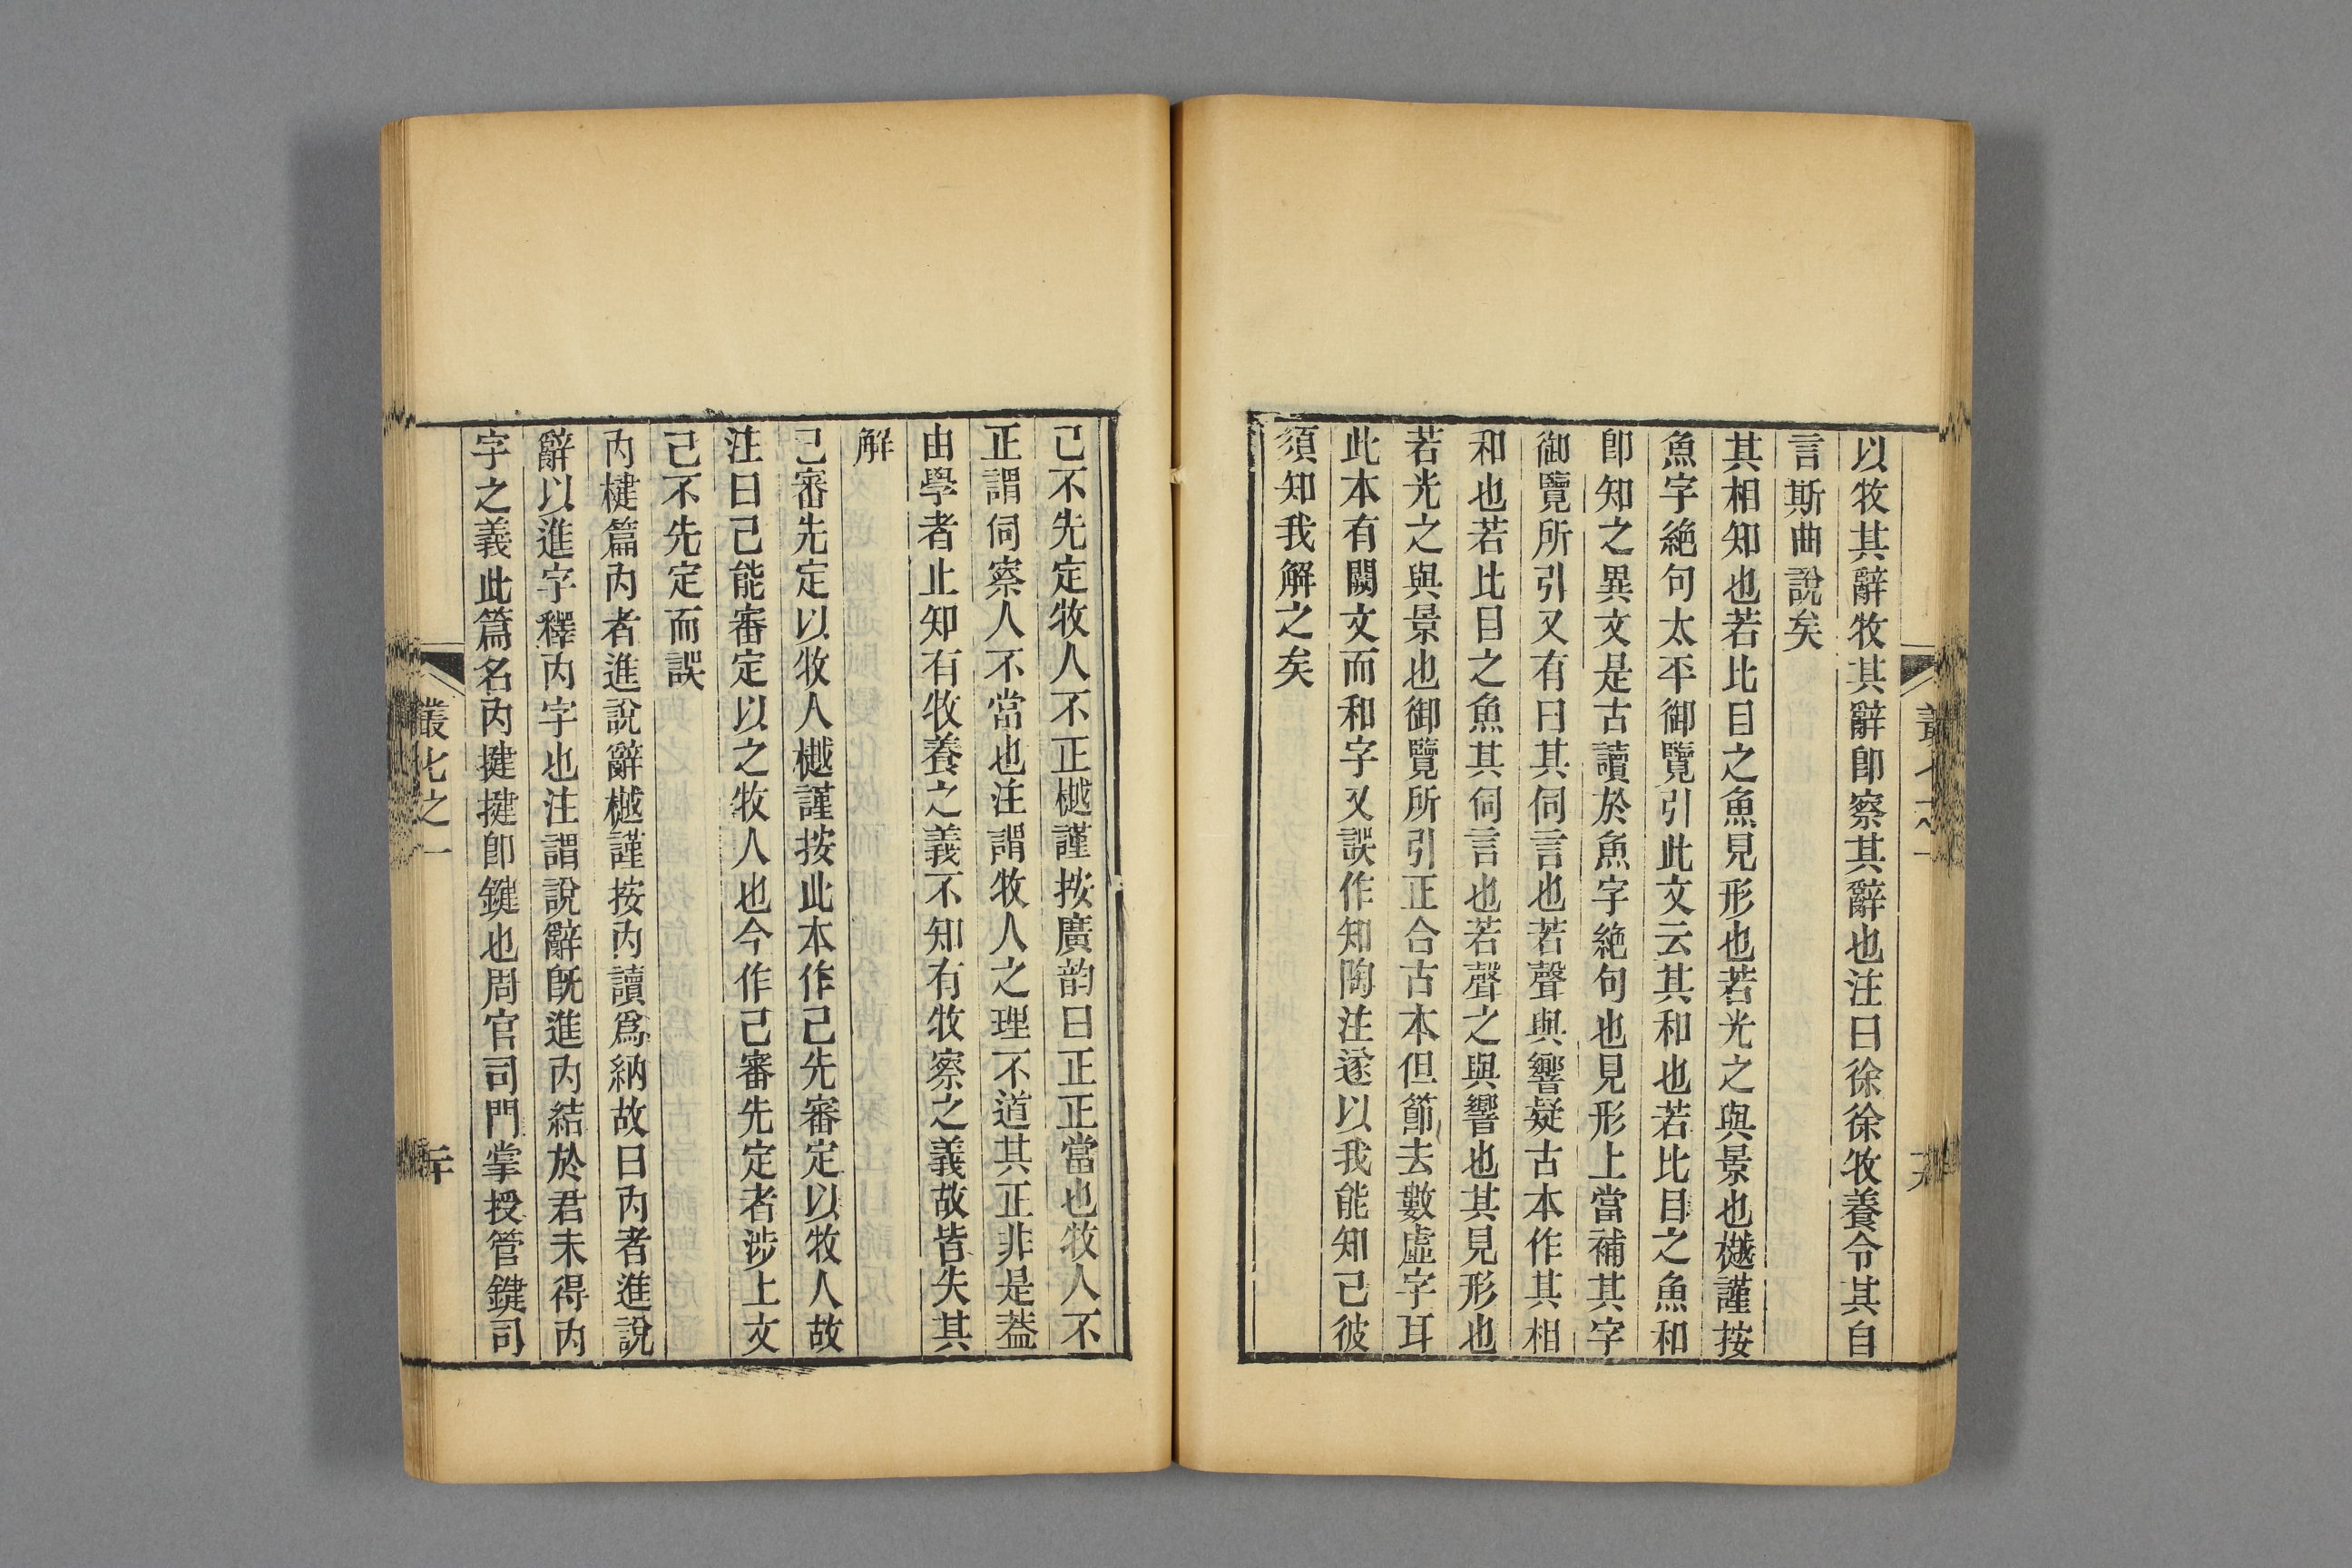 以牧其辭牧其辭卽察其辭也注曰徐徐牧養令其自
言斯曲說矣
其相知也若比目之魚見形也若光之與景也樾謹按
魚字絶句太平御覽引此文云其和也若比目之魚和
卽知之異文是古讀於魚字絶句也見形上當補其字
御覽所引又有曰其伺言也若聲與響疑古本作其相
和也若比目之魚其伺言也若聲之與響也其見形也
若光之與景也御覽所引正合古本但節去數虛字耳
此本有闕文而和字又誤作知陶注遂以我能知己彼
須知我解之矣
己不先定牧人不正樾謹按廣韵曰正正當也牧人不
正謂伺察人不當也注謂牧人之理不道其正非是葢
由學者止知有牧養之義不知有牧察之義故皆失其
解
己審先定以牧人樾謹按此本作己先審定以牧人故
注曰己能審定以之牧人也今作己審先定者涉上文
己不先定而誤
內楗篇內者進說辭樾謹按內讀爲納故曰內者進說
辭以進字釋內字也注謂說辭旣進內結於君未得內
字之義此篇名內揵揵卽鍵也周官司門掌授管鍵司
叢七之一